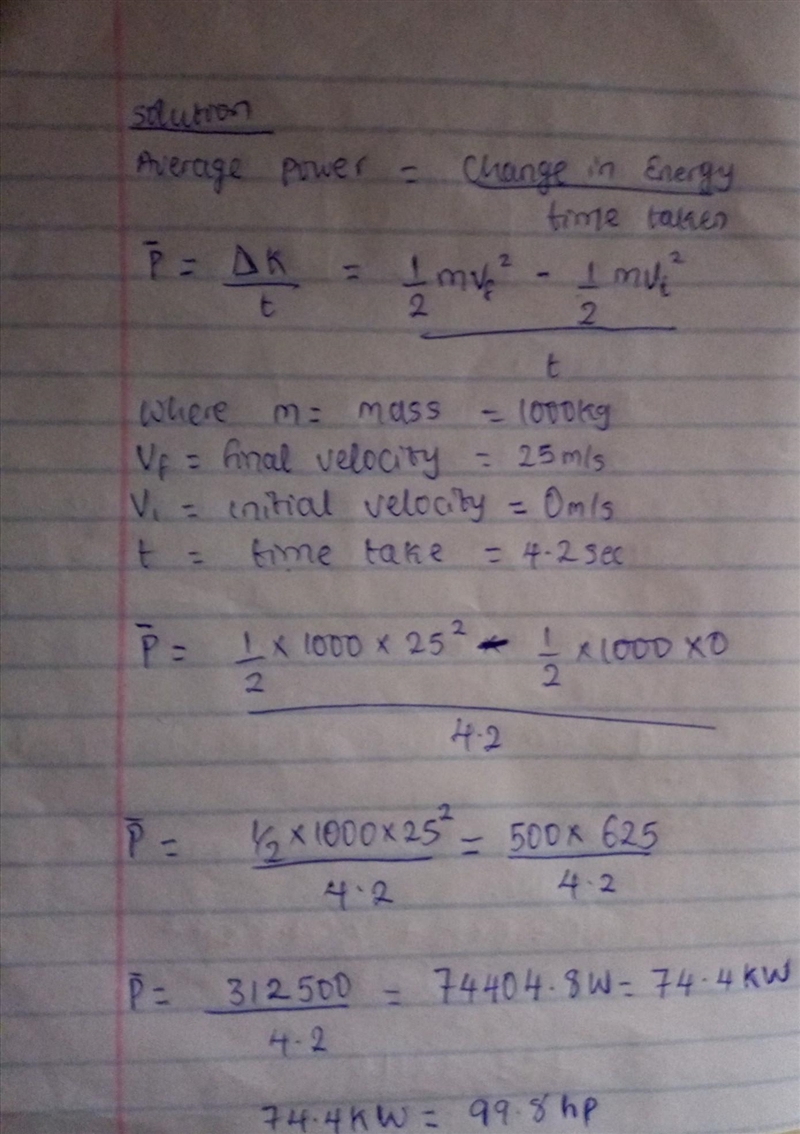 Solution
Average power = Change in Energy
time taken
P̄ = ΔK/t = ½mvf² - ½mvi²
t
Where m = mass = 1000kg
Vf = final velocity = 25m/s
Vi = initial velocity = 0m/s
t = time take = 4.2 sec
P̄ = ½ × 1000 × 25² - ½ × 1000 × 0
4.2
P̄ = ½ × 1000 × 25² / 4.2 = 500 × 625 / 4.2
P̄ = 312500 / 4.2 = 74404.8W = 74.4KW
74.4KW = 99.8hp